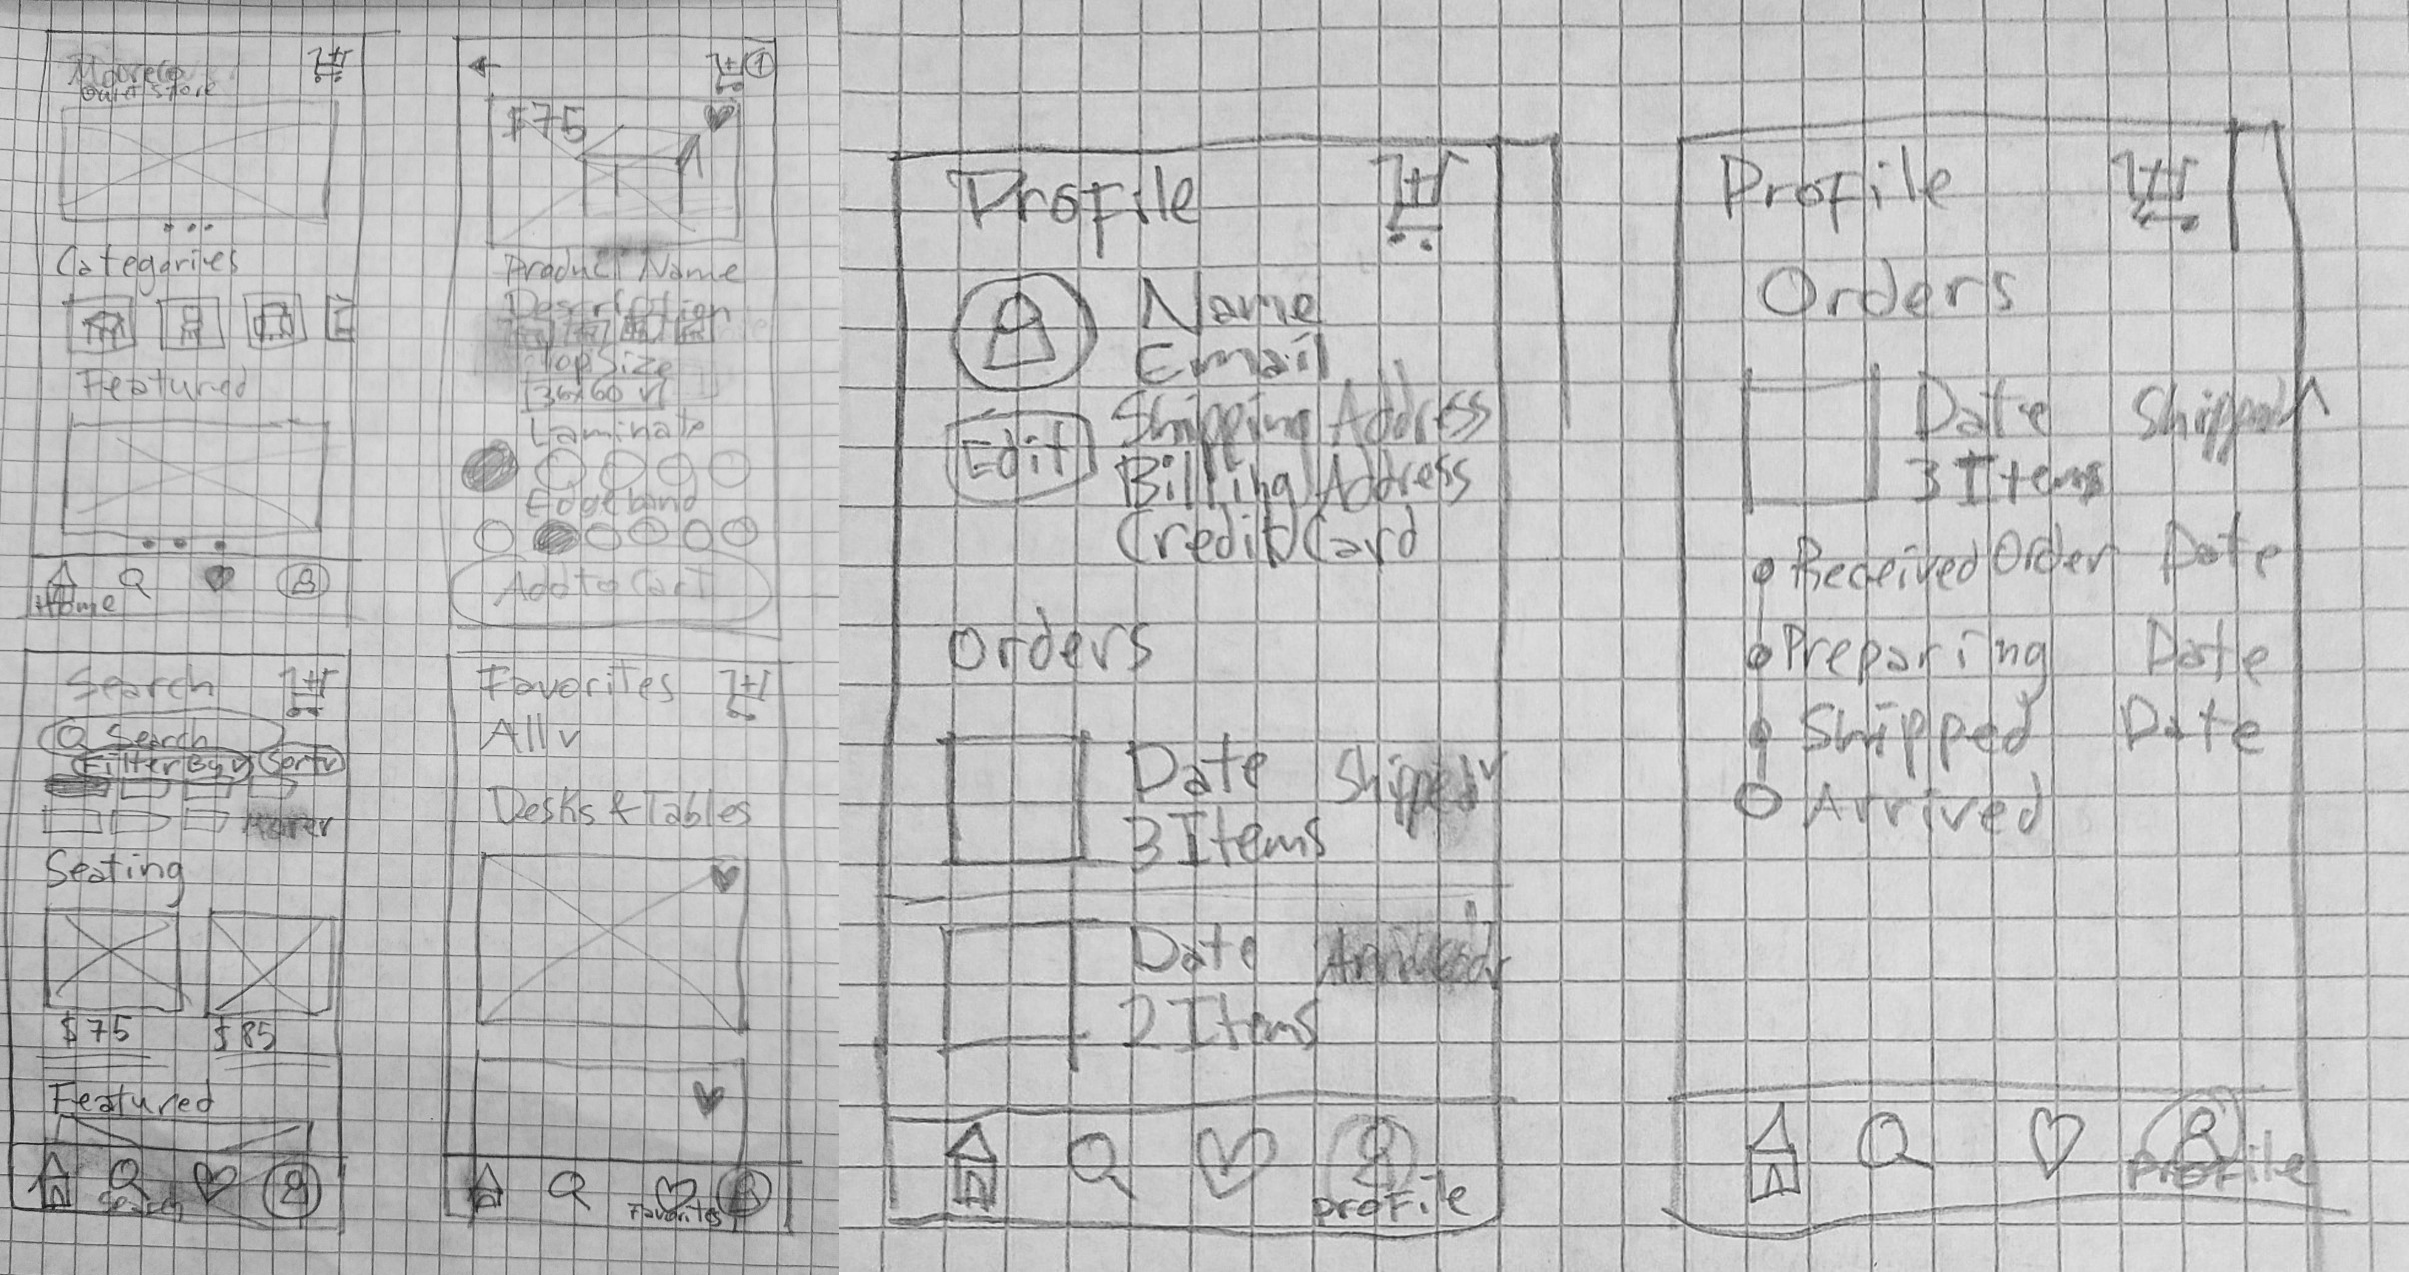 Mooreco
Outlet Store
Categories
Featured
Home
1
$75
Product Name
Description
Top Size
36x60 v
Laminate
Edgeband
Add to Cart
Search
Search
Filter By v Sort v
Seating
$75 $85
Featured
Search
Favorites
All v
Desks & Tables
Favorites
Profile
Name
Email
Edit
Shipping Address
Billing Address
Credit Card
Orders
Date Shipped v
3 Items
Date
2 Items
Profile
Profile
Orders
Date Shipped ^
3 Items
Received Order Date
Preparing Date
Shipped Date
Arrived
Profile